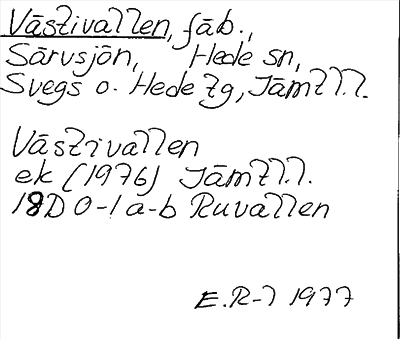 Västivallen, fäb.,
Särvsjön, Hede sn,
Svegs o. Hede tg, Jämtl.l.
Västivallen
ek (1976) Jämtl.l.
18D 0-1 a-b Ruvallen
E.R-l 1977